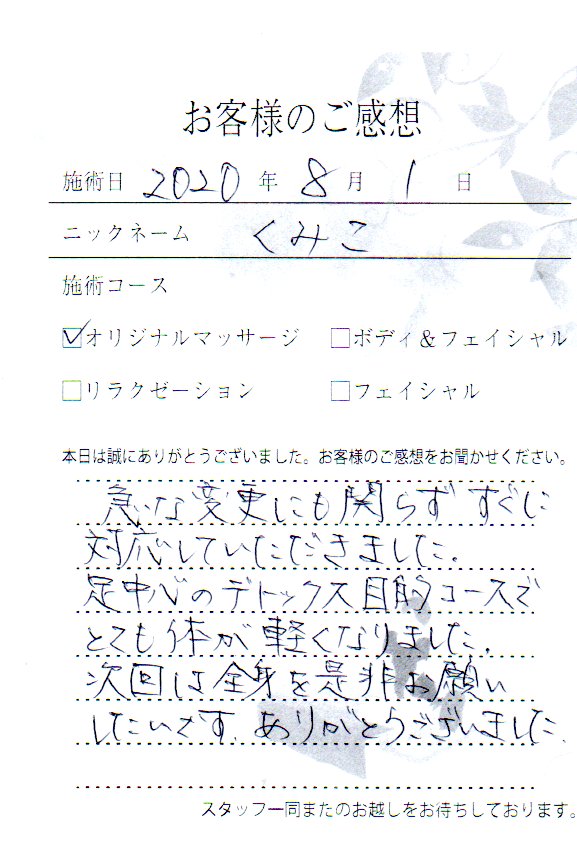 お客様のご感想
施術日 2020 年 8 月 1 日
ニックネーム くみこ
施術コース
☑オリジナルマッサージ □ボディ&フェイシャル
□リラクゼーション □フェイシャル
本日は誠にありがとうございました。お客様のご感想をお聞かせください。
急な変更にも関らず すぐに
対応していただきました.
足中心のデトックス目的コースで
とても体が軽くなりました.
次回は全身を是非お願い
したいです. ありがとうございました.
スタッフ一同またのお越しをお待ちしております。